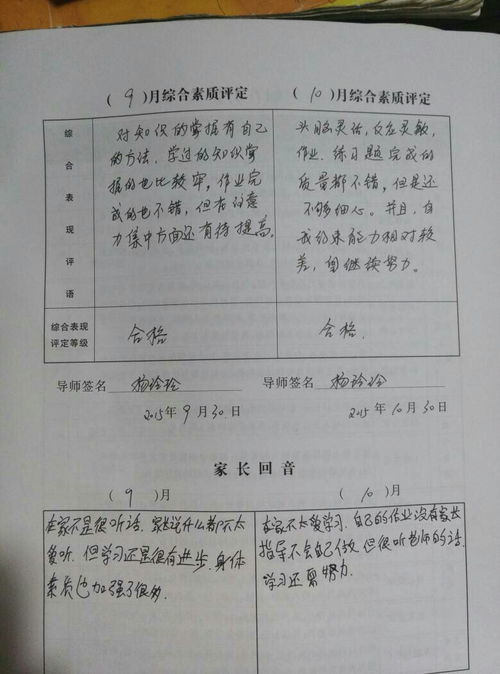 （9）月综合素质评定
（10）月综合素质评定
综合表现评语
对知识的掌握有自己
的方法．学过的知识掌
握的也比较牢，作业完
成的也不错，但在注意
力集中方面还有待提高。
头脑灵活，反应灵敏，
作业．练习题完成的
质量都不错，但是还
不够细心。并且，自
我约束能力相对较
差，望继续努力。
综合表现
评定等级
合格
合格．
导师签名 杨玲玲
导师签名 杨玲玲
2015年9月30日
2015年10月30日
家长回音
（9）月
（10）月
在家不是很听话．家长说什么都不太
爱听．但学习还是很有进步．身体
素质也加强了很多．
在家不太爱学习．自己的作业没有家长
指导不会自己做．但很听老师的话．
学习还需努力．